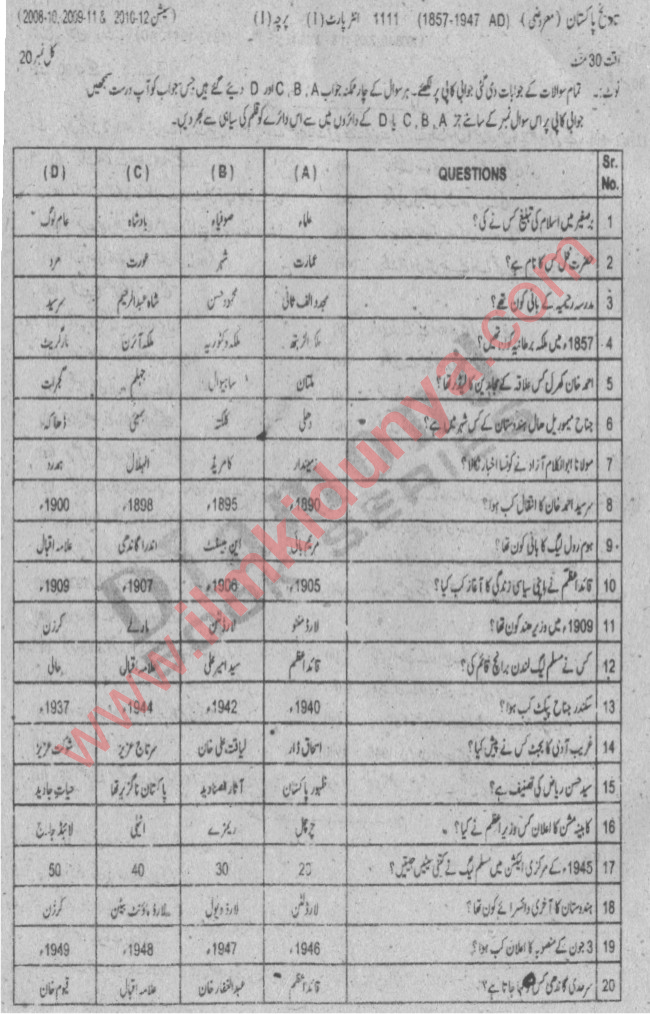 تاریخ پاکستان (معروضی) (1857-1947 AD) 1111 انٹر پارٹ (I) پرچہ (I) (سیشن 12-2010 & 11-2009 ,10-2008)
وقت 30 منٹ کل نمبر 20
نوٹ:۔ تمام سوالات کے جوابات دی گئی جوابی کاپی پر لکھئے۔ ہر سوال کے چار ممکنہ جواب A ,B ,C اور D دیئے گئے ہیں جس جواب کو آپ درست سمجھیں
جوابی کاپی پر اس سوال نمبر کے سامنے A ,B ,C یا D کے دائروں میں سے اس دائرے کو قلم کی سیاہی سے بھر دیں۔
Sr. No. QUESTIONS (A) (B) (C) (D)
1 برصغیر میں اسلام کی تبلیغ کس نے کی؟ علماء صوفیاء بادشاہ عام لوگ
2 حضرت محل کس کا نام ہے؟ عمارت شہر عورت مرد
3 مدرسہ رحیمیہ کے بانی کون تھے؟ مجدد الف ثانی محمود حسن شاہ عبدالرحیم سرسید
4 1857ء میں ملکہ برطانیہ کون تھیں؟ ملکہ الزبتھ ملکہ وکٹوریہ ملکہ آئرن مارگریٹ
5 احمد خان کھرل کس علاقہ کے مجاہدین کا لیڈر تھا؟ ملتان ساہیوال جہلم گجرات
6 جناح میموریل ھال ہندوستان کے کس شہر میں ہے؟ دھلی کلکتہ بمبئی ڈھاکہ
7 مولانا ابوالکلام آزاد نے کونسا اخبار نکالا؟ زمیندار کامریڈ الہلال ہمدرد
8 سرسید احمد خان کا انتقال کب ہوا؟ 1890ء 1895ء 1898ء 1900ء
9 ہوم رول لیگ کا بانی کون تھا؟ مریم بائی این بیسنٹ اندرا گاندھی علامہ اقبال
10 قائداعظم نے اپنی سیاسی زندگی کا آغاز کب کیا؟ 1905ء 1906ء 1907ء 1909ء
11 1909ء میں وزیر ھند کون تھا؟ لارڈ منٹو لارڈ لٹن مارلے کرزن
12 کس نے مسلم لیگ لندن برانچ قائم کی؟ قائداعظم سید امیر علی علامہ اقبال حالی
13 سکندر جناح پیکٹ کب ہوا؟ 1940ء 1942ء 1944ء 1937ء
14 غریب آدمی کا بجٹ کس نے پیش کیا؟ اسحاق ڈار لیاقت علی خان سرتاج عزیز شوکت عزیز
15 سید حسن ریاض کی تصنیف ہے؟ ظہور پاکستان آثار الصنادید پاکستان ناگزیر تھا حیات جاوید
16 کابینہ مشن کا اعلان کس وزیراعظم نے کیا؟ چرچل ریمزے اٹیلی لائیڈ جارج
17 1945ء کے مرکزی الیکشن میں مسلم لیگ نے کتنی سیٹیں جیتیں؟ 20 30 40 50
18 ہندوستان کا آخری وائسرائے کون تھا؟ لارڈ لٹن لارڈ ویول لارڈ ماؤنٹ بیٹن کرزن
19 3 جون کے منصوبہ کا اعلان کب ہوا؟ 1946ء 1947ء 1948ء 1949ء
20 سرحدی گاندھی کس کو کہا جاتا ہے؟ قائداعظم عبدالغفار خان علامہ اقبال قیوم خان
www.ilmkidunya.com
SERIES